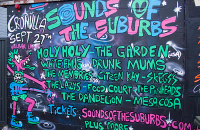 CRONULLA
SEPT 27TH
SOUNDS OF
THE SUBURBS
HOLY HOLY THE GARDEN
WHITE FUDS DRUNK MUMS
THE MEMORIES CITIZEN KAY SKEGSS
THE LAZYS FOOD COURT DEPRAVEDS
THE DANDELION MEGA COSA
TICKETS: SOUNDSOFTHESUBURBS.COM
PLUS MORE